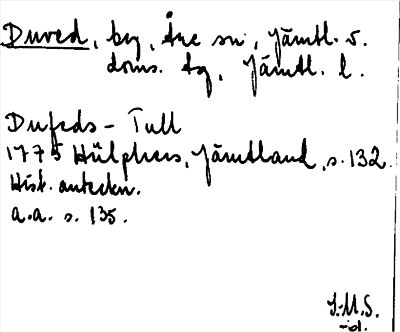 Duved, by, Åre sn, Jämtl. v.
doms. tg, Jämtl. l.
Dufeds-Tull
1775 Hülphers, Jämtland, s. 132.
Hist. anteckn.
a.a. s. 135.
J.M.S.